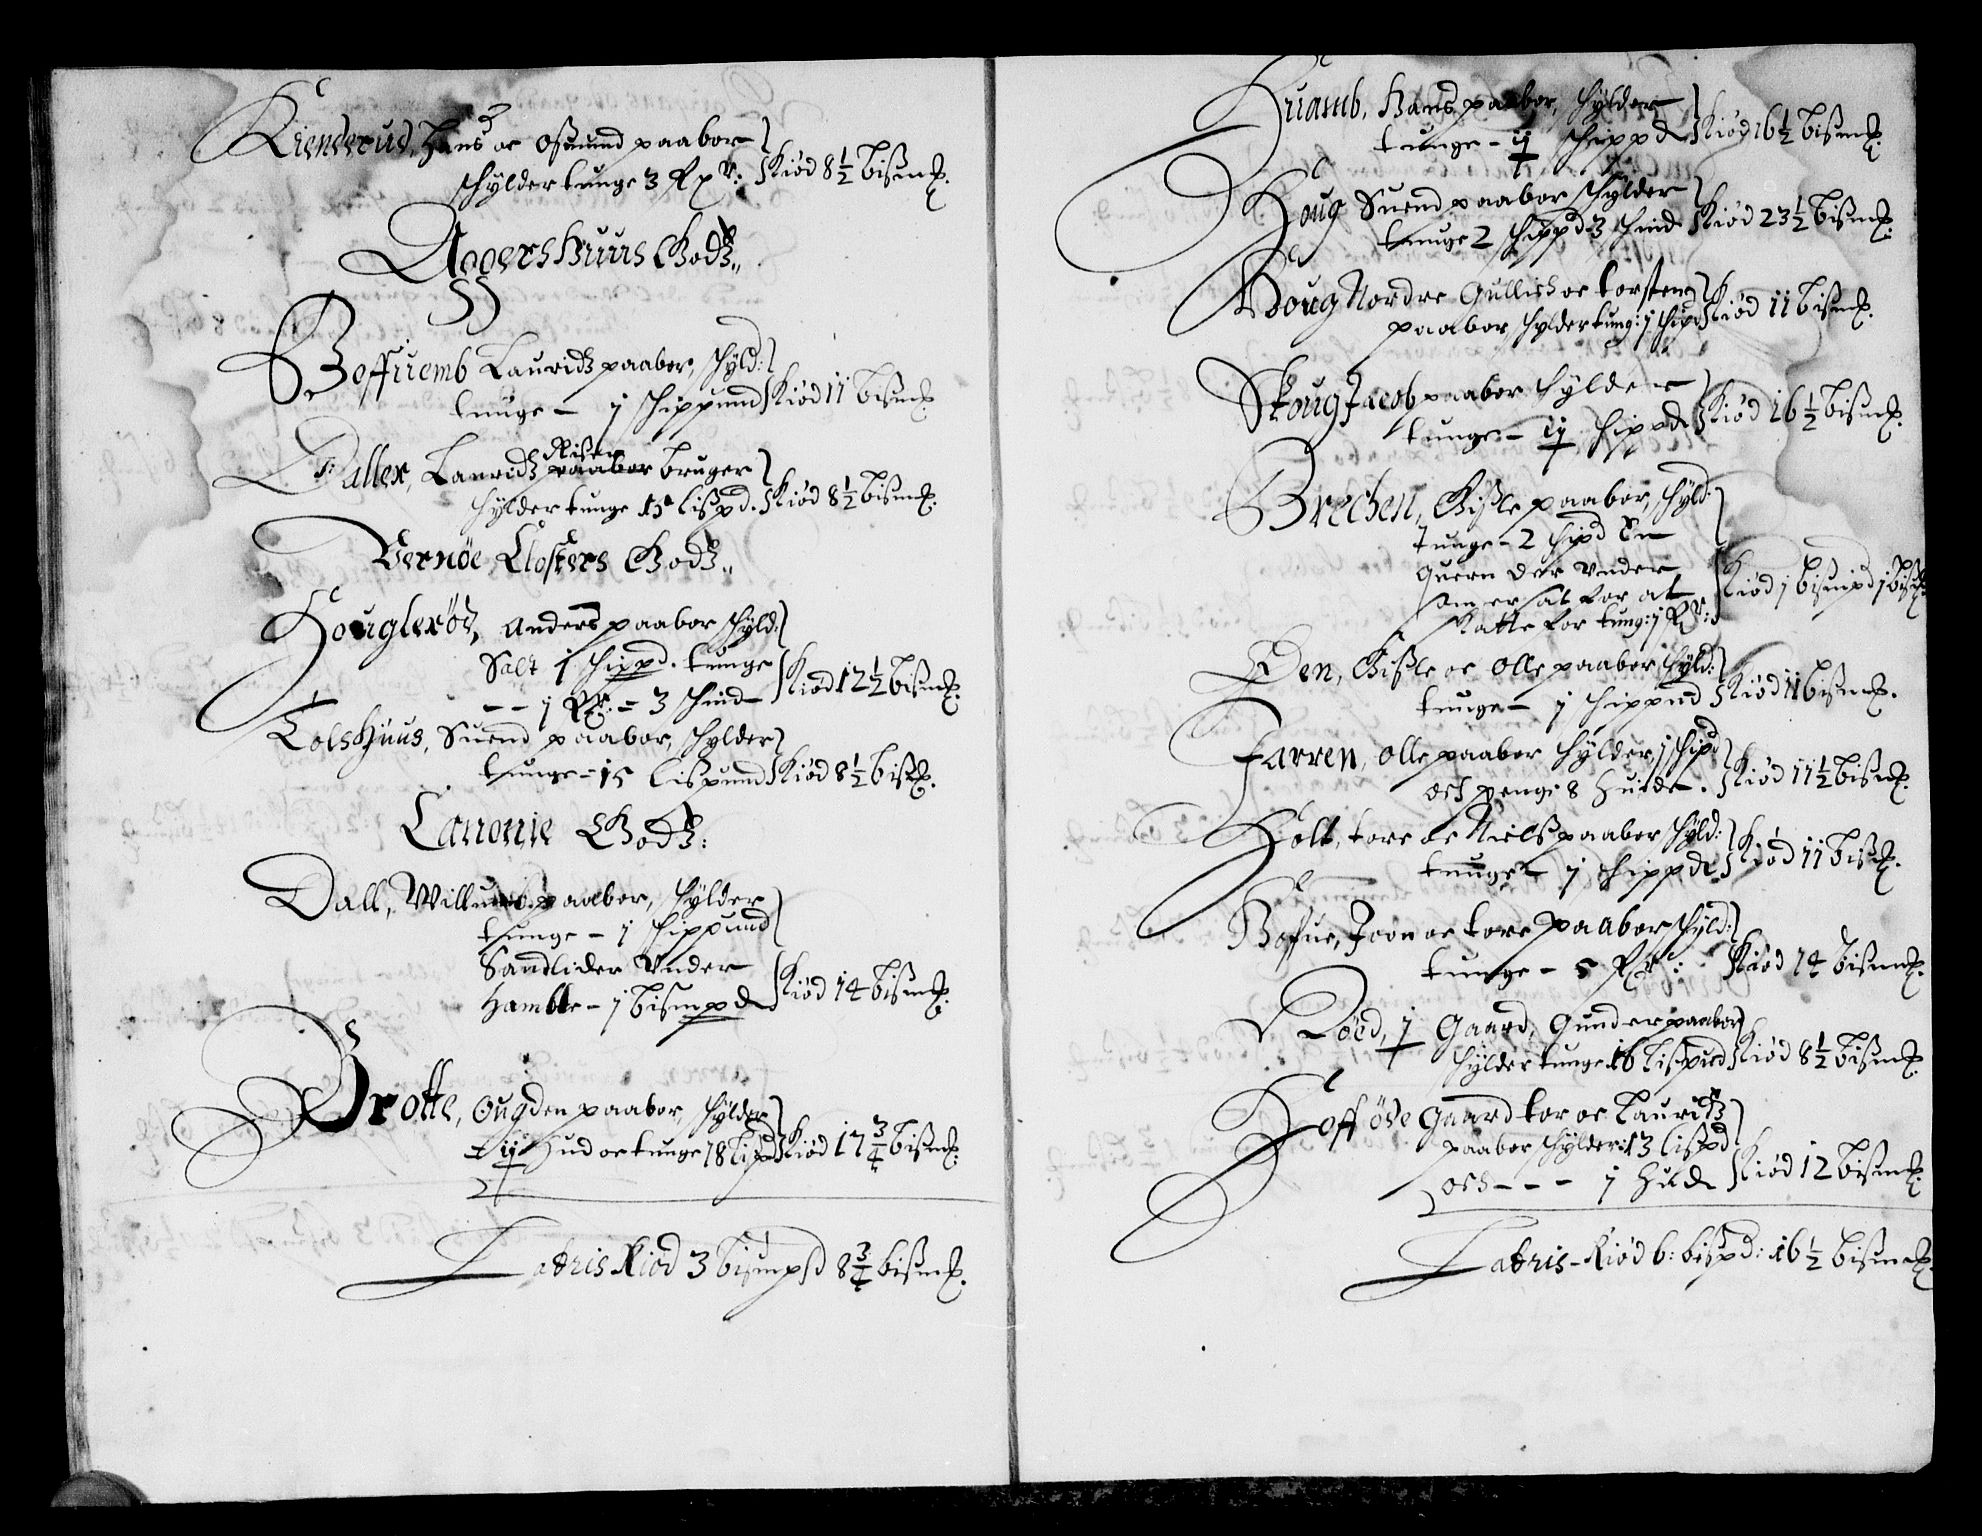 Kienderud, Hans oc Osmund paabor
schylder tunge 3 Rpr: Kiød 8 1/2 bismk.
Aggershuus Godtz,,
Boffuemb Lauridtz paaboer, schyld:
tunge – j schippund Kiød 11 bismk.
Riser
Daller, Lauridtz paabor bruger
schylder tunge 15 lispd. Kiød 8 1/2 bismk.
Vernöe Closters Godtz,,
Houglerød, Anders paabor schyld:
Salt j schippd. tunge
– – j Rpr: – 3 schind Kiød 12 1/2 bismk.
Tolshuus, Suend paabor, schylder
tunge – 15 lispund Kiød 8 1/2 bismk.
Canonie Godtz:
Dall, Willumb paabor, schylder
tunge – j schippund
Sandlider Vnder
Hamble – j bismpd Kiød 14 bismk.
Grotte, Ougden paabor, schylder
ij Hud oc tunge 18 lispd Kiød 17 3/4 bismk.
Latris Kiød 3 bismpd 8 3/4 bismk.
Huamb, Hans paabor, schylder
tunge – ij schippd Kiød 16 1/2 bismk.
Houg Suend paabor schylder
tunge 2 schippd 3 schind Kiød 23 1/2 bismk.
Houg Nordre Gullich oc torsten
paabor schylder tung: j schipd Kiød 11 bismk.
Skoug Jacob paabor schylder
tunge – ij schippd Kiød 16 1/2 bismk.
Brechen, Gisle paabor, schyld:
tunge – 2 schipd En
Quern der vnder
som er sat for at
schatte for tung: j Rpr: Kiød j bismpd j bismk
Den, Gisle oc Olle paabor schyld:
tunge – j schippnd Kiød 11 bismk.
Farren, Olle paabor schylder j schipd
och penge 8 huide. Kiød 11 1/2 bismk.
Holt, tore oc Nielss paabor schyld:
tunge – j schippd Kiød 11 bismk.
Hofue, Joon oc tore paabor schyld:
tunge – 5 Rpr: Kiød 14 bismk.
Löed, j Gaard, Gunder paabor
schylder tunge 16 lispnd Kiød 8 1/2 bismk.
Hofföde Gaard tor oc Lauridtz
paabor schylder 13 lispd
och – – – j Hud Kiød 12 bismk.
Latris – Kiød 6: bispd: 16 1/2 bismk.